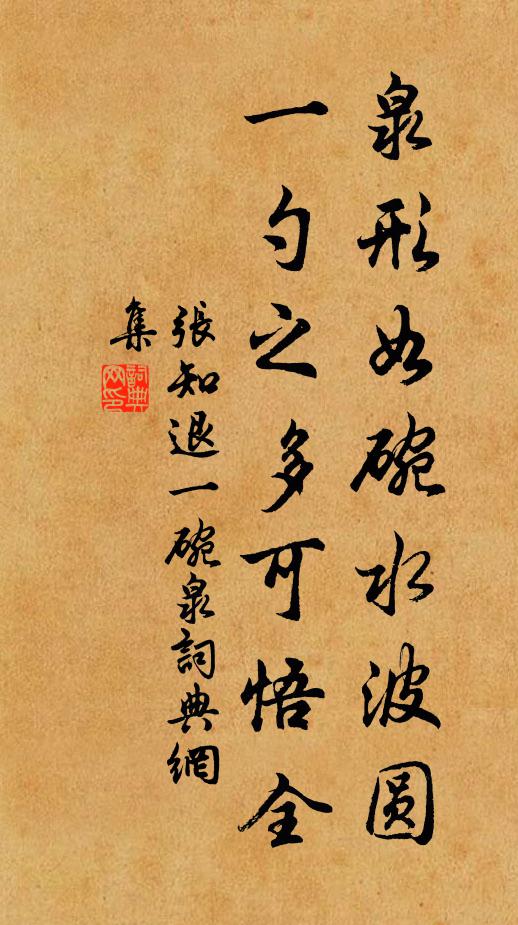 泉形如碗水波圆
一勺之多可悟全
張知退一碗泉詞典網
集
詞典网印